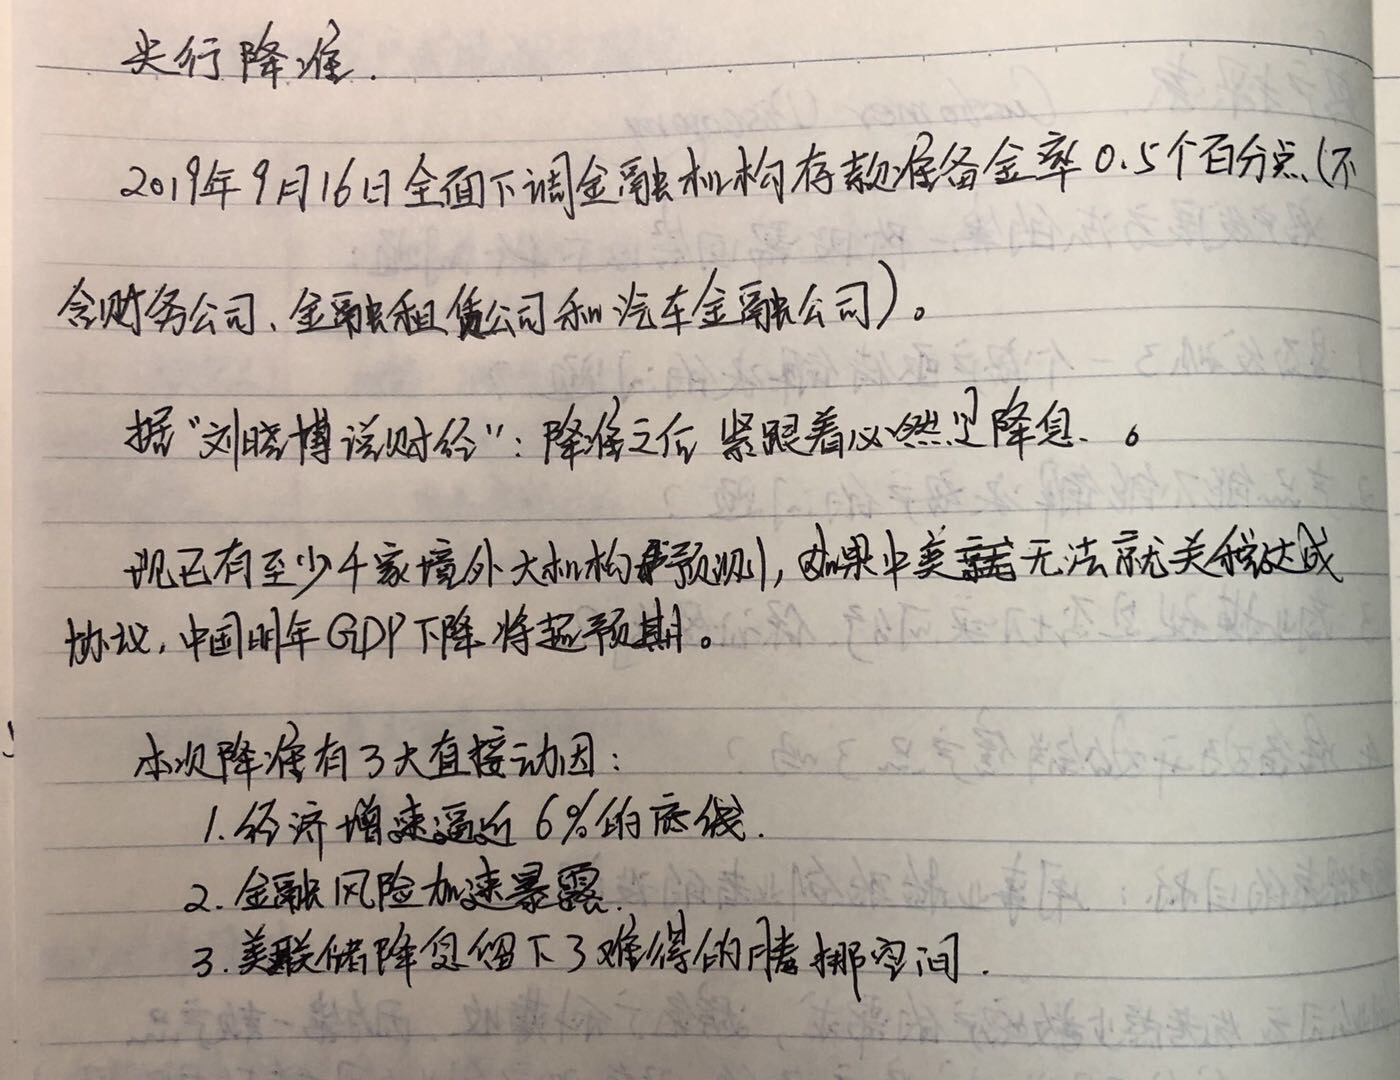 央行降准.
2019年9月16日全面下调金融机构存款准备金率0.5个百分点(不
含财务公司、金融租赁公司和汽车金融公司)。
据“刘晓博说财经”:降准之后紧跟着必然是降息。
现已有至少4家境外大机构预测,如果中美无法就关税达成
协议,中国明年GDP下降将超预期。
本次降准有3大直接动因:
1.经济增速逼近6%的底线.
2.金融风险加速暴露.
3.美联储降息留下了难得的腾挪空间.